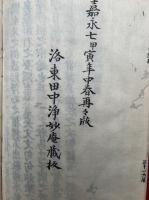 嘉永七甲寅年中春再々版
洛東田中浄妙庵蔵板